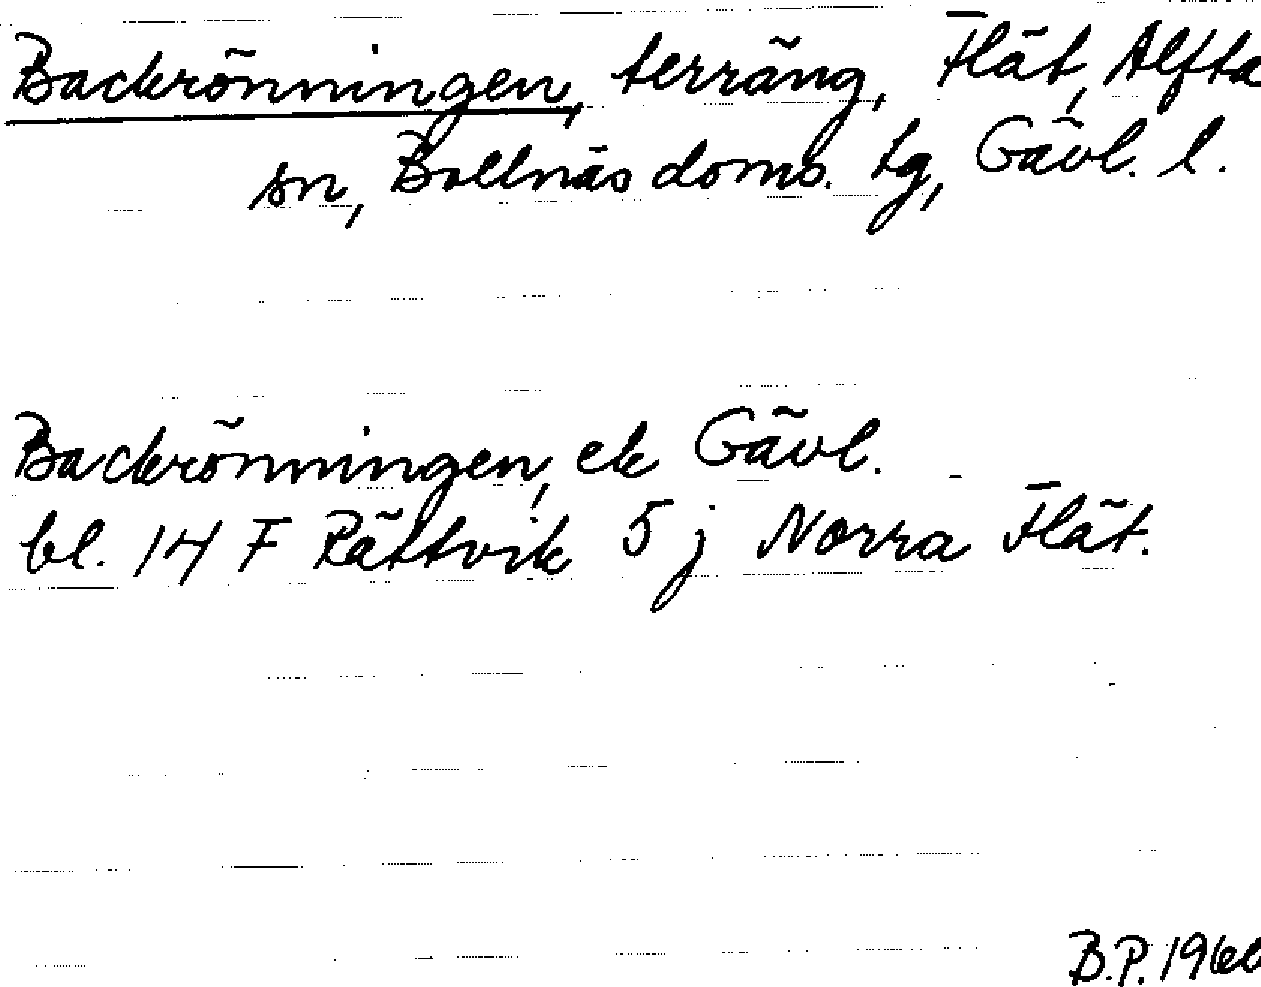 Backrönningen, terräng, Flät, Alfta
sn, Bollnäs doms. tg, Gävl. l.
Backrönningen, ek Gävl.
bl. 14 F Rättvik 5 j Norra Flät.
B.P. 1966